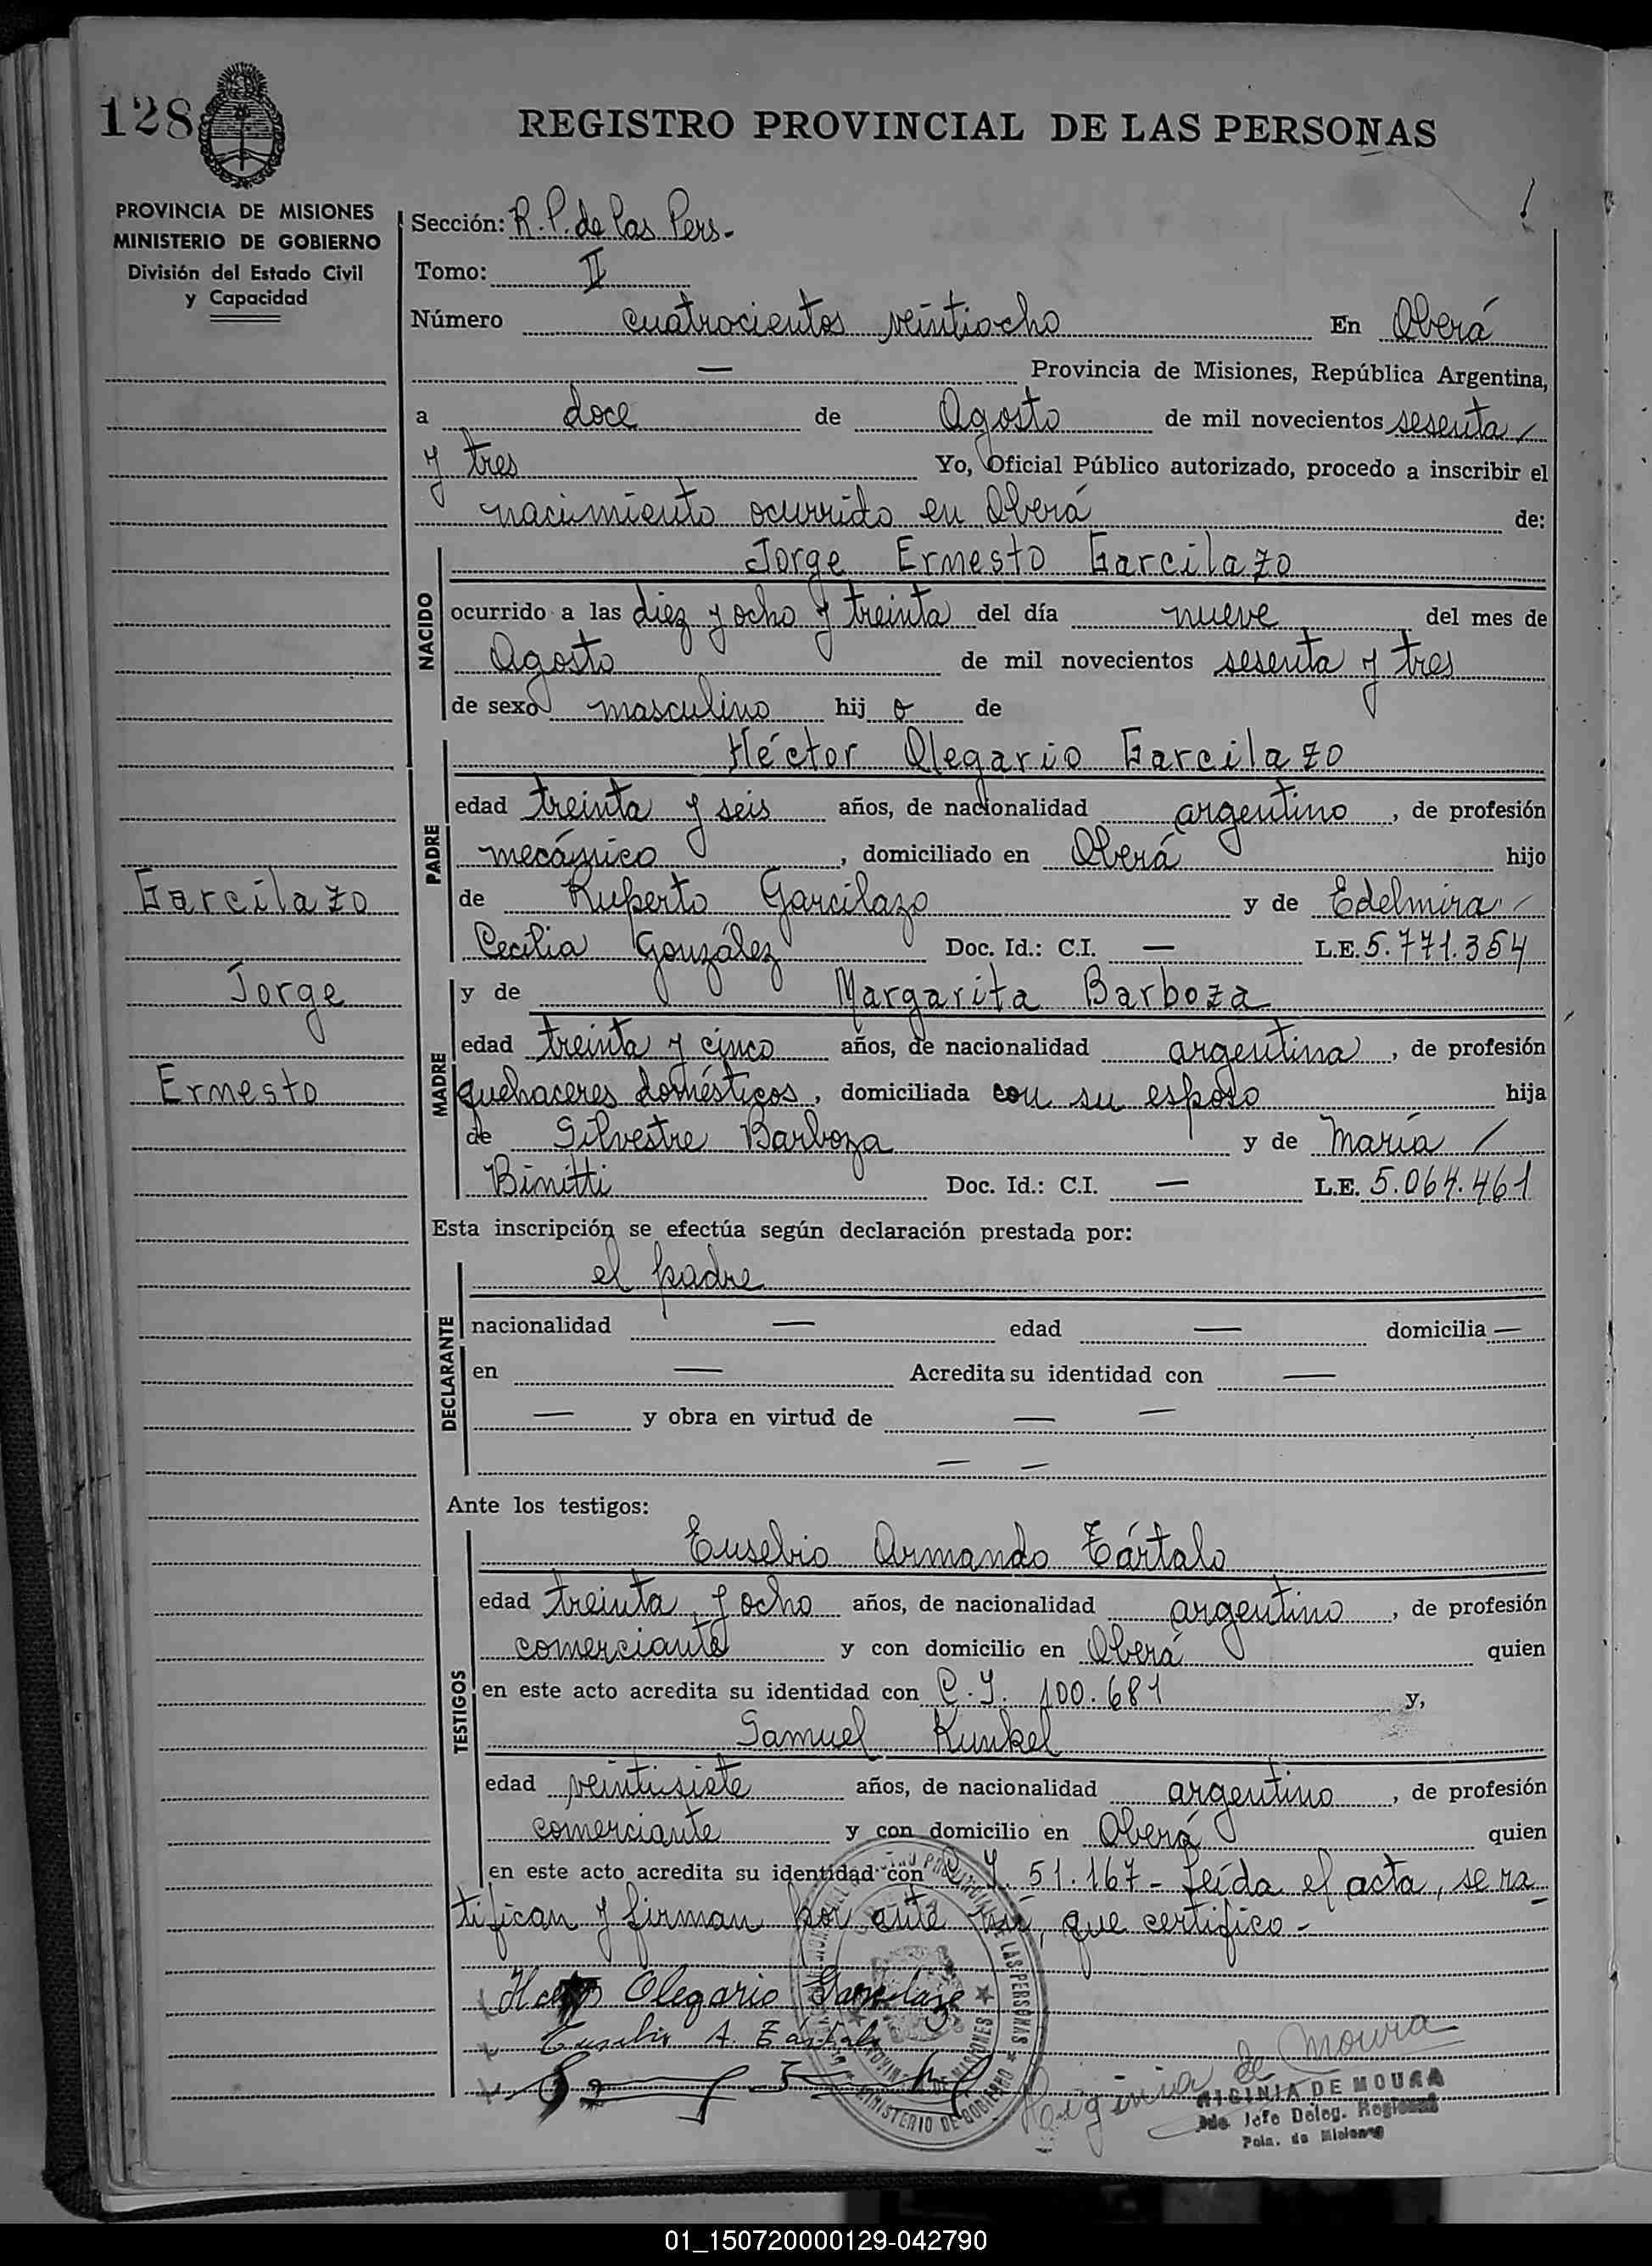 128
REGISTRO PROVINCIAL DE LAS PERSONAS
PROVINCIA DE MISIONES
MINISTERIO DE GOBIERNO
División del Estado Civil
y Capacidad
Sección: R. P. de las Pers.-
Tomo: II
Número cuatrocientos veintiocho En Oberá
— Provincia de Misiones, República Argentina,
a doce de Agosto de mil novecientos sesenta /
y tres Yo, Oficial Público autorizado, procedo a inscribir el
nacimiento ocurrido en Oberá de:
NACIDO
Jorge Ernesto Garcilazo
ocurrido a las diez y ocho y treinta del día nueve del mes de
Agosto de mil novecientos sesenta y tres
de sexo masculino hij o de
PADRE
Héctor Olegario Garcilazo
edad treinta y seis años, de nacionalidad argentino, de profesión
mecánico, domiciliado en Oberá hijo
Garcilazo
de Ruperto Garcilazo y de Edelmira /
Cecilia González Doc. Id.: C.I. — L.E. 5.771.354
Jorge
MADRE
y de Margarita Barboza
edad treinta y cinco años, de nacionalidad argentina, de profesión
Ernesto
quehaceres domésticos, domiciliada con su esposo hija
de Silvestre Barboza y de María /
Binitti Doc. Id.: C.I. — L.E. 5.064.461
Esta inscripción se efectúa según declaración prestada por:
DECLARANTE
el padre
nacionalidad — edad — domicilia —
en — Acredita su identidad con —
— y obra en virtud de — —
— —
Ante los testigos:
TESTIGOS
Eusebio Armando Zártalo
edad treinta y ocho años, de nacionalidad argentino, de profesión
comerciante y con domicilio en Oberá quien
en este acto acredita su identidad con C. I. 100.681 y,
Samuel Kunkel
edad veintisiete años, de nacionalidad argentino, de profesión
comerciante y con domicilio en Oberá quien
en este acto acredita su identidad con C. I. 51.167 - Leída el acta, se ra
tifican y firman por ante mí, que certifico -
Olegario Garcilazo
Eusebio A. Zártalo
Higinia de Moura
HIGINIA DE MOURA
Jefe Deleg. Regional
Pcia. de Misiones
MINISTERIO DE GOBIERNO
PROVINCIA DE MISIONES
01_150720000129-042790